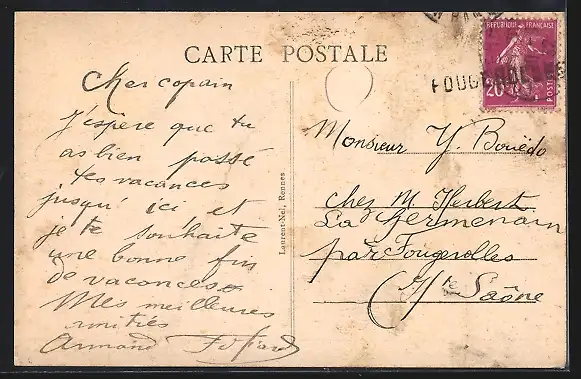 CARTE POSTALE
REPUBLIQUE FRANÇAISE
20
POSTES
Cher copain
J'espère que tu
as bien passé
tes vacances
jusqu'ici et
je te souhaite
une bonne fin
de vacances
Mes meilleures
amitiés
Armand
Laurent-Nel, Rennes
Monsieur Y. Bouëdo
chez M. Herbert
La
par Fougerolles
Hte Saône